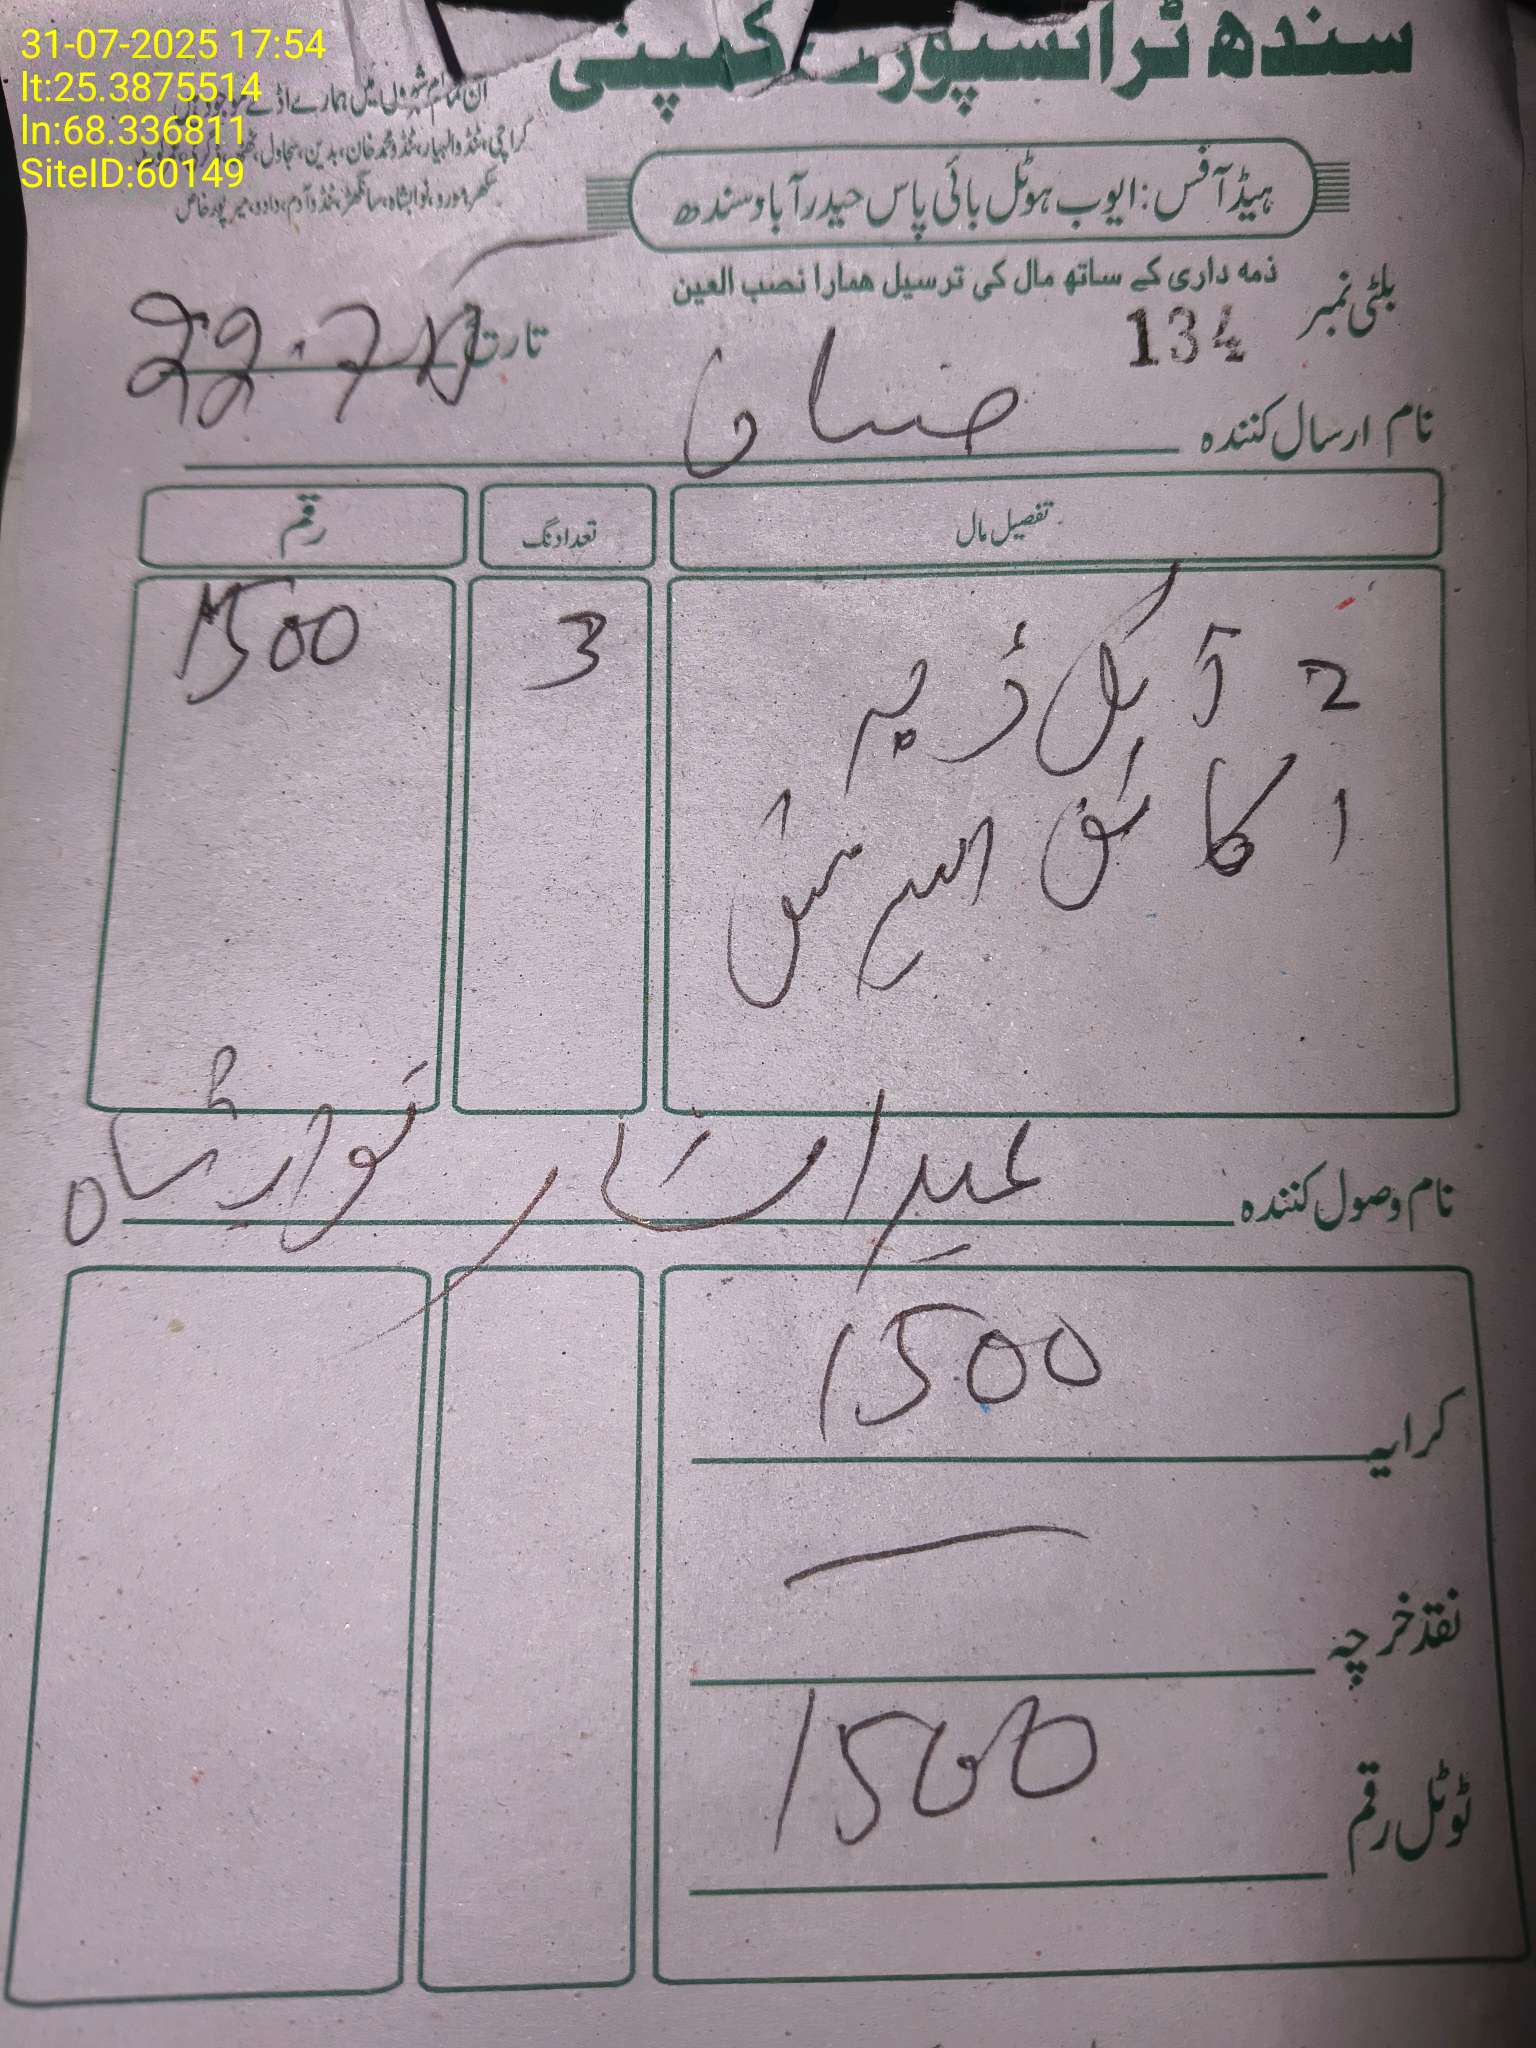 31-07-2025 17:54
lt:25.3875514
ln:68.336811
SiteID:60149
سندھ ٹرانسپورٹ کمپنی
ان تمام شہروں میں ہمارے اڈے
کراچی، ٹنڈوالہیار، ٹنڈو محمد خان، بدین، سجاول،
سکھر، مورو، نوابشاہ، سانگھڑ، ٹنڈوآدم، دادو، میرپورخاص
ہیڈ آفس: ایوب ہوٹل بائی پاس حیدرآباد سندھ
ذمہ داری کے ساتھ مال کی ترسیل ھمارا نصب العین
بلٹی نمبر 134
تاریخ 22-7
نام ارسال کنندہ
تفصیل مال تعداد نگ رقم
2 آئل ڈپہ 3 1500
1 کا
نام وصول کنندہ نوابشاہ
کرایہ 1500
نقد خرچہ —
ٹوٹل رقم 1500